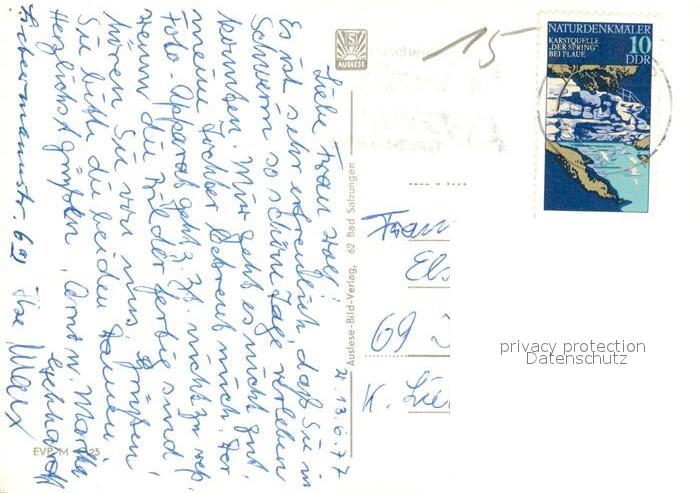 Liebe Frau Wolf!
Es ist sehr erfreulich daß Sie in
Schwerin so schöne Tage verleben
konnten. Mir geht es nicht gut,
meine Tochter betreut mich. Der
Foto-Apparat geht z. Zt. nicht zu rep.
wenn die Bilder fertig sind
hören Sie von mir. Grüßen
Sie bitte die beiden Damen
Herzlichst grüßen, Arno u. Martha
Eckhardt
62 Ilse Marx
d. 13.6.77
AUSLESE
Auslese-Bild-Verlag, 62 Bad Salzungen
EVP M
15
NATURDENKMÄLER
KARSTQUELLE
„DER SPRING"
BEI PLAUE
10
DDR
Frau
Els
69
K. Lie
privacy protection
Datenschutz